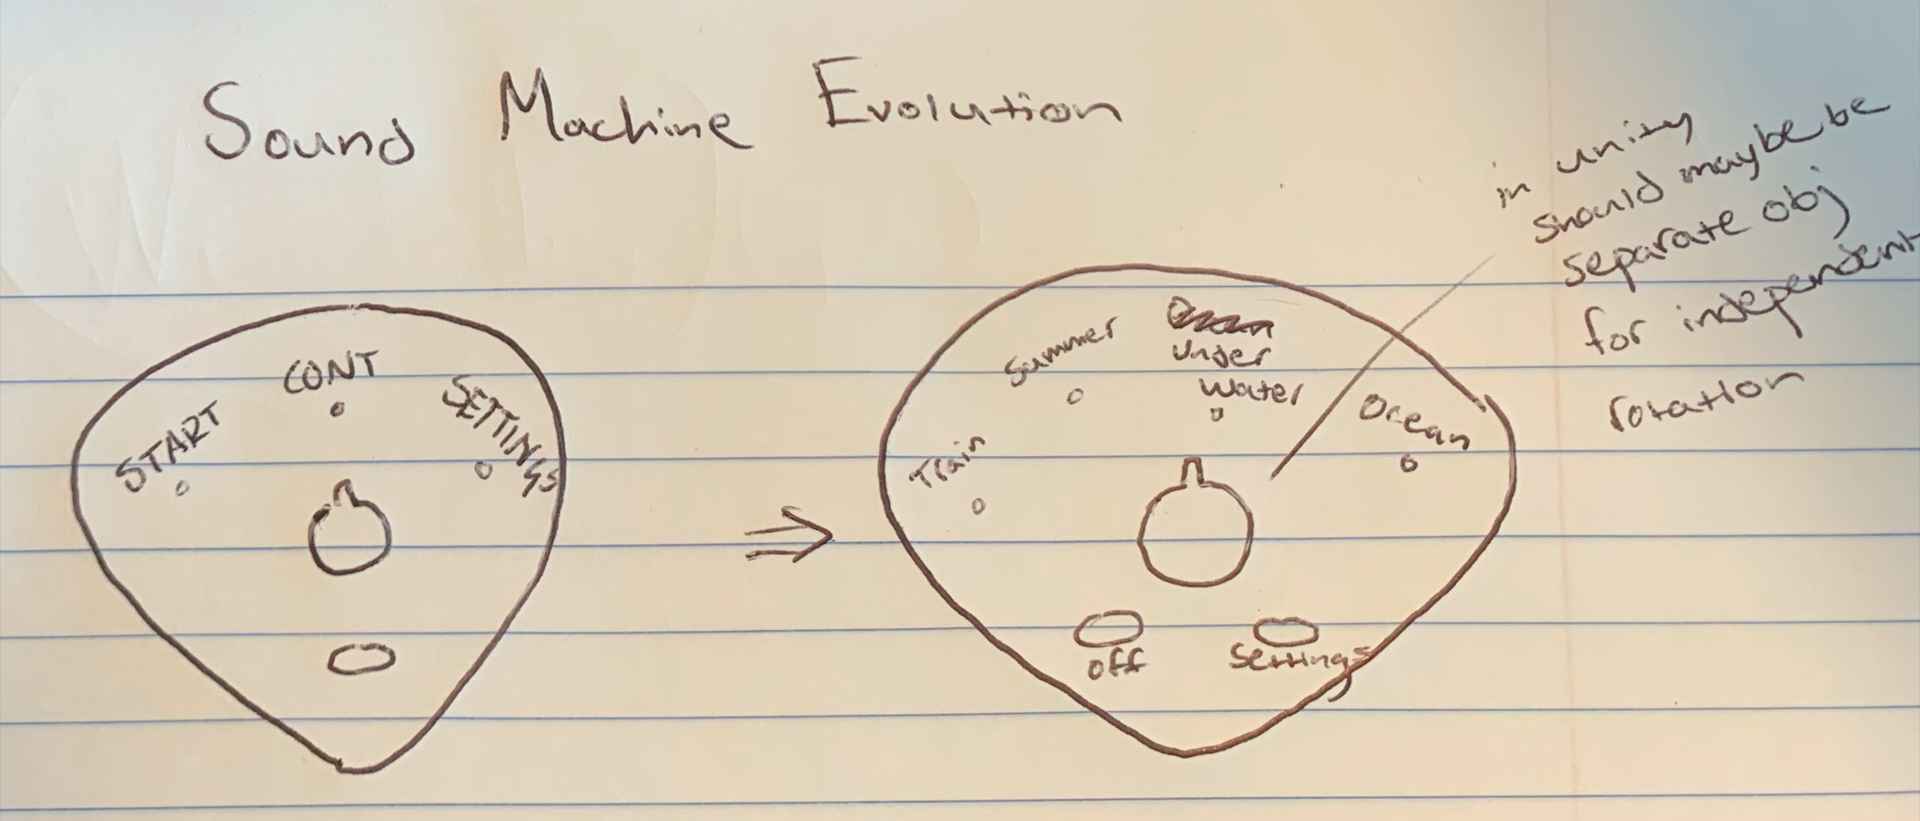 Sound Machine Evolution
in unity
should maybe be
separate obj
for independent
rotation
START
CONT
SETTINGS
Train
Summer
Under
Water
Ocean
off
Settings